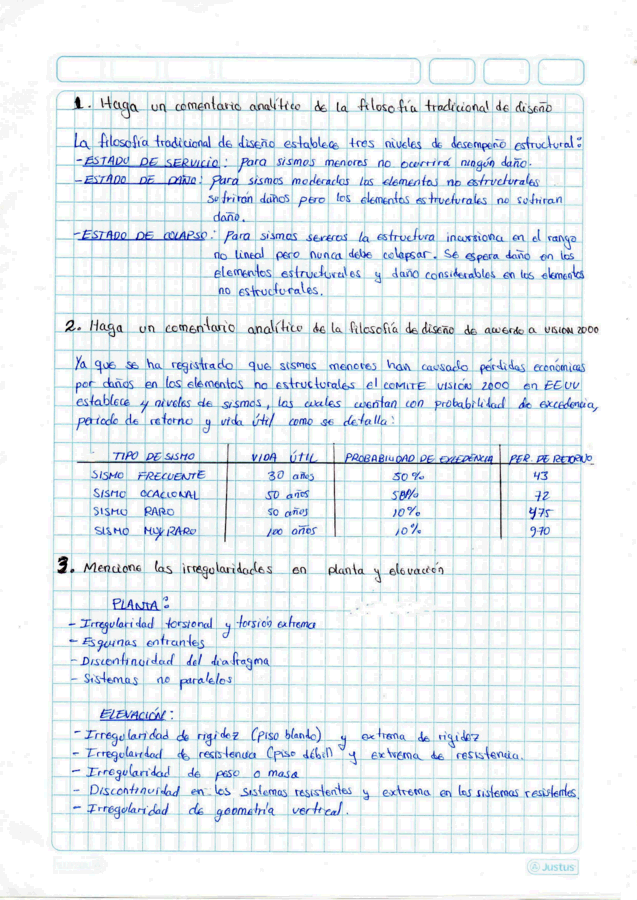 1. Haga un comentario analítico de la filosofía tradicional de diseño
La filosofía tradicional de diseño establece tres niveles de desempeño estructural:
- ESTADO DE SERVICIO: Para sismos menores no ocurrirá ningún daño.
- ESTADO DE DAÑO: Para sismos moderados los elementos no estructurales
sufrirán daños pero los elementos estructurales no sufriran
daño.
- ESTADO DE COLAPSO: Para sismos severos la estructura incursiona en el rango
no lineal pero nunca debe colapsar. Se espera daño en los
elementos estructurales y daño considerables en los elementos
no estructurales.
2. Haga un comentario analítico de la filosofía de diseño de acuerdo a VISION 2000
Ya que se ha registrado que sismos menores han causado pérdidas económicas
por daños en los elementos no estructurales el COMITE VISIÓN 2000 en EEUU
establece 4 niveles de sismos, las cuales cuentan con probabilidad de excedencia,
periodo de retorno y vida útil como se detalla:
TIPO DE SISMO VIDA ÚTIL PROBABILIDAD DE EXCEDENCIA PER. DE RETORNO
SISMO FRECUENTE 30 años 50% 43
SISMO OCACIONAL 50 años 50% 72
SISMO RARO 50 años 10% 475
SISMO MUY RARO 100 años 10% 970
3. Mencione las irregularidades en planta y elevación
PLANTA:
- Irregularidad torsional y torsión extrema
- Esquinas entrantes
- Discontinuidad del diafragma
- Sistemas no paralelos
ELEVACIÓN:
- Irregularidad de rigidez (piso blando) y extrema de rigidez
- Irregularidad de resistencia (piso débil) y extrema de resistencia.
- Irregularidad de peso o masa
- Discontinuidad en los sistemas resistentes y extrema en los sistemas resistentes.
- Irregularidad de geometría vertical.
Justus